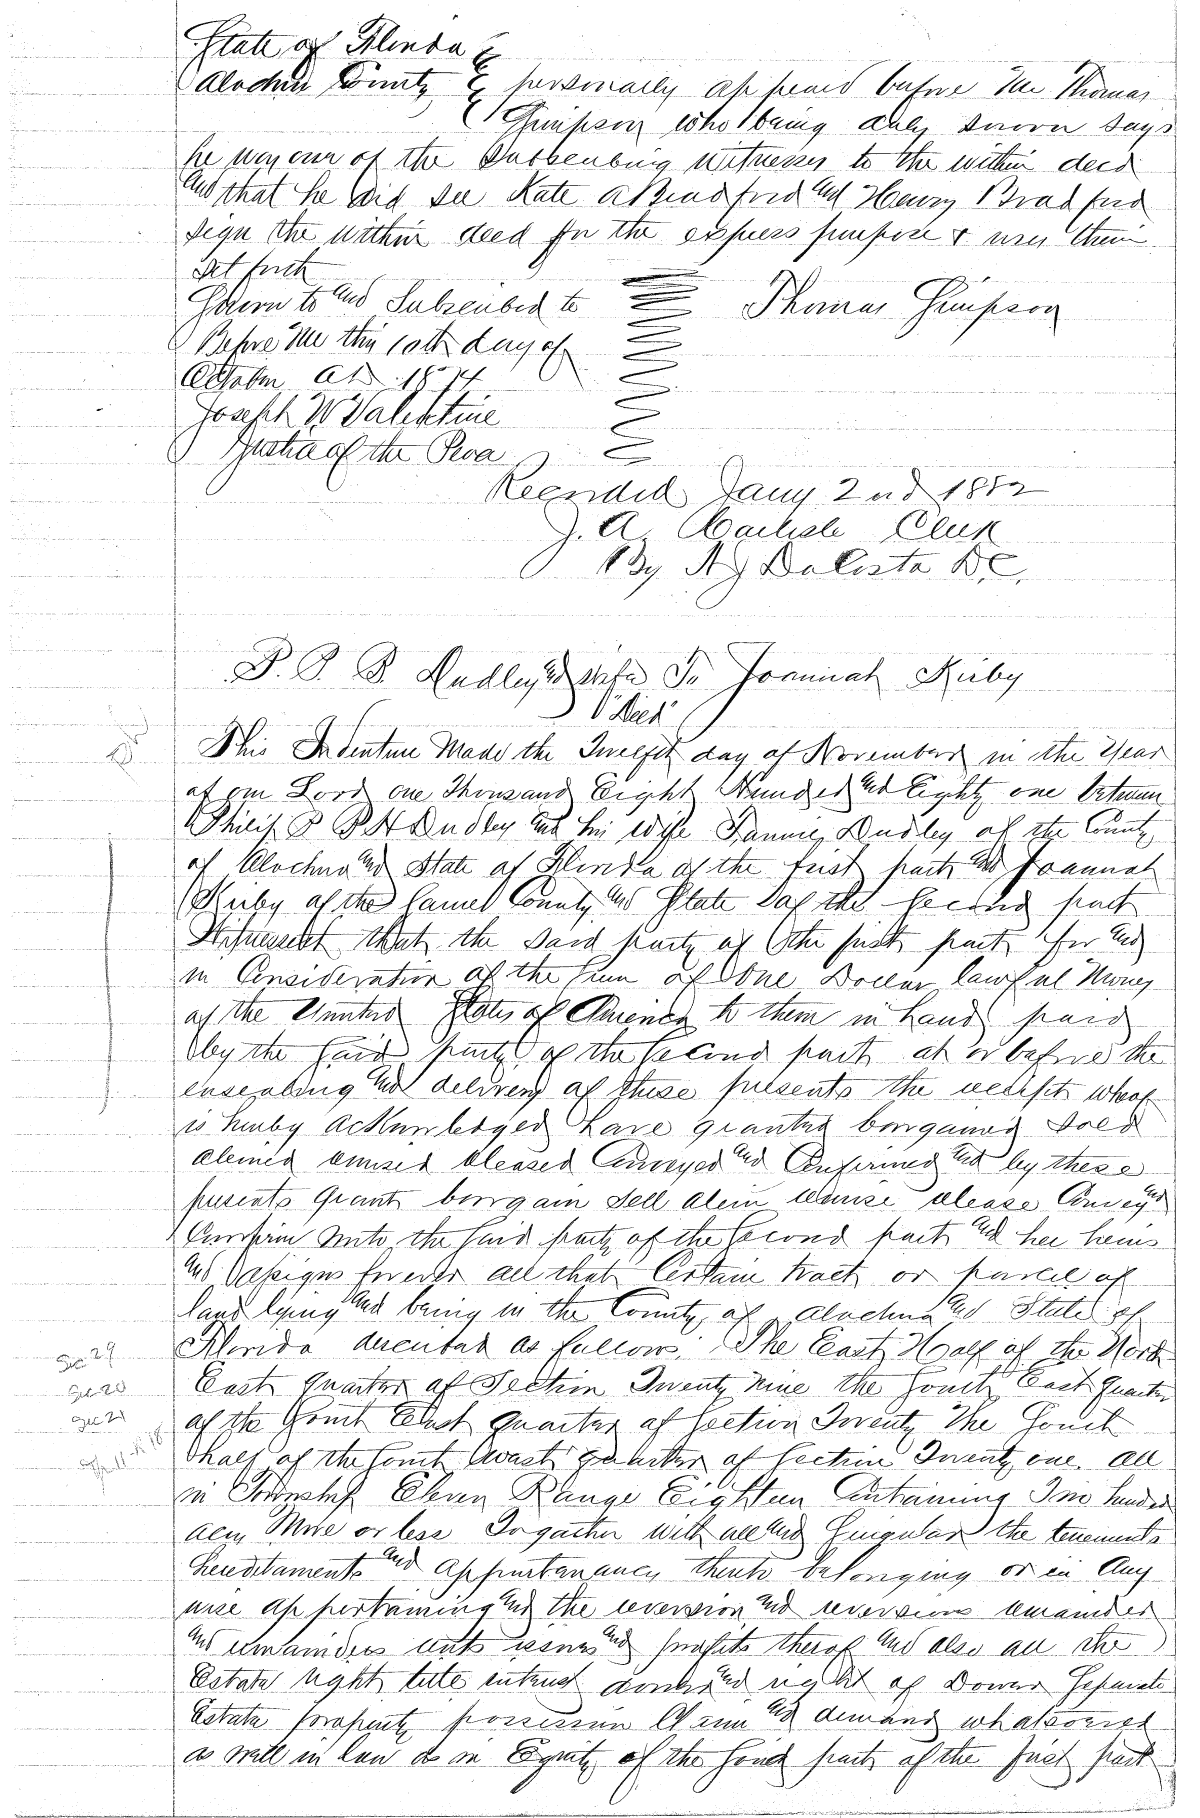 State of Florida
Alachua County personally appeared before me Thomas
Simpson who being duly sworn says
he was one of the subscribing witnesses to the within deed
and that he did see Kate A Bradford and Henry Bradford
sign the within deed for the express purpose & uses therein
set forth
Sworn to and Subscribed to Thomas Simpson
Before me this 10th day of
October AD. 1874
Joseph W Valentine
Justice of the Peace
Recorded Jany 2nd 1882
J. A. Carlisle Clerk
By A J DaCosta D.C.
P. P. B. Dudley and wife To Joannah Kirby
"Deed"
This Indenture Made the Twelfth day of November in the Year
of our Lord one Thousand Eight Hundred and Eighty one between
Philip P B H Dudley and his wife Fannie Dudley of the County
of Alachua and State of Florida of the first part and Joannah
Kirby of the Same County and State of the Second part
Witnesseth that the said party of the first part for and
in Consideration of the Sum of One Dollar lawful Money
of the United States of America to them in hand paid
by the Said party of the Second part at or before the
ensealing and delivery of these presents the receipt whereof
is hereby acknowledged have granted bargained Sold
aliened remised released Conveyed and Confirmed and by these
presents Grant bargain Sell alien remise release Convey and
Confirm unto the Said party of the Second part and her heirs
and assigns forever all that Certain tract or parcel of
land lying and being in the County of Alachua and State of
Florida described as follows. The East Half of the North
Sec 29
East Quarter of Section Twenty nine the South East Quarter
Sec 20
of the South East Quarter of Section Twenty The South
Sec 21
half of the South West quarter of Section Twenty one. all
Tp. 11. R. 18
in Township Eleven Range Eighteen Containing Two hundred
acres More or less Together with all and Singular the tenements
hereditaments and appurtenances thereto belonging or in Any
wise appertaining and the reversion and reversions remainder
and remainders rents issues and profits thereof and also all the
Estate right title interest dower and right of Dower Separate
Estate property possession Claim and demand whatsoever
as well in law as in Equity of the Said party of the first part